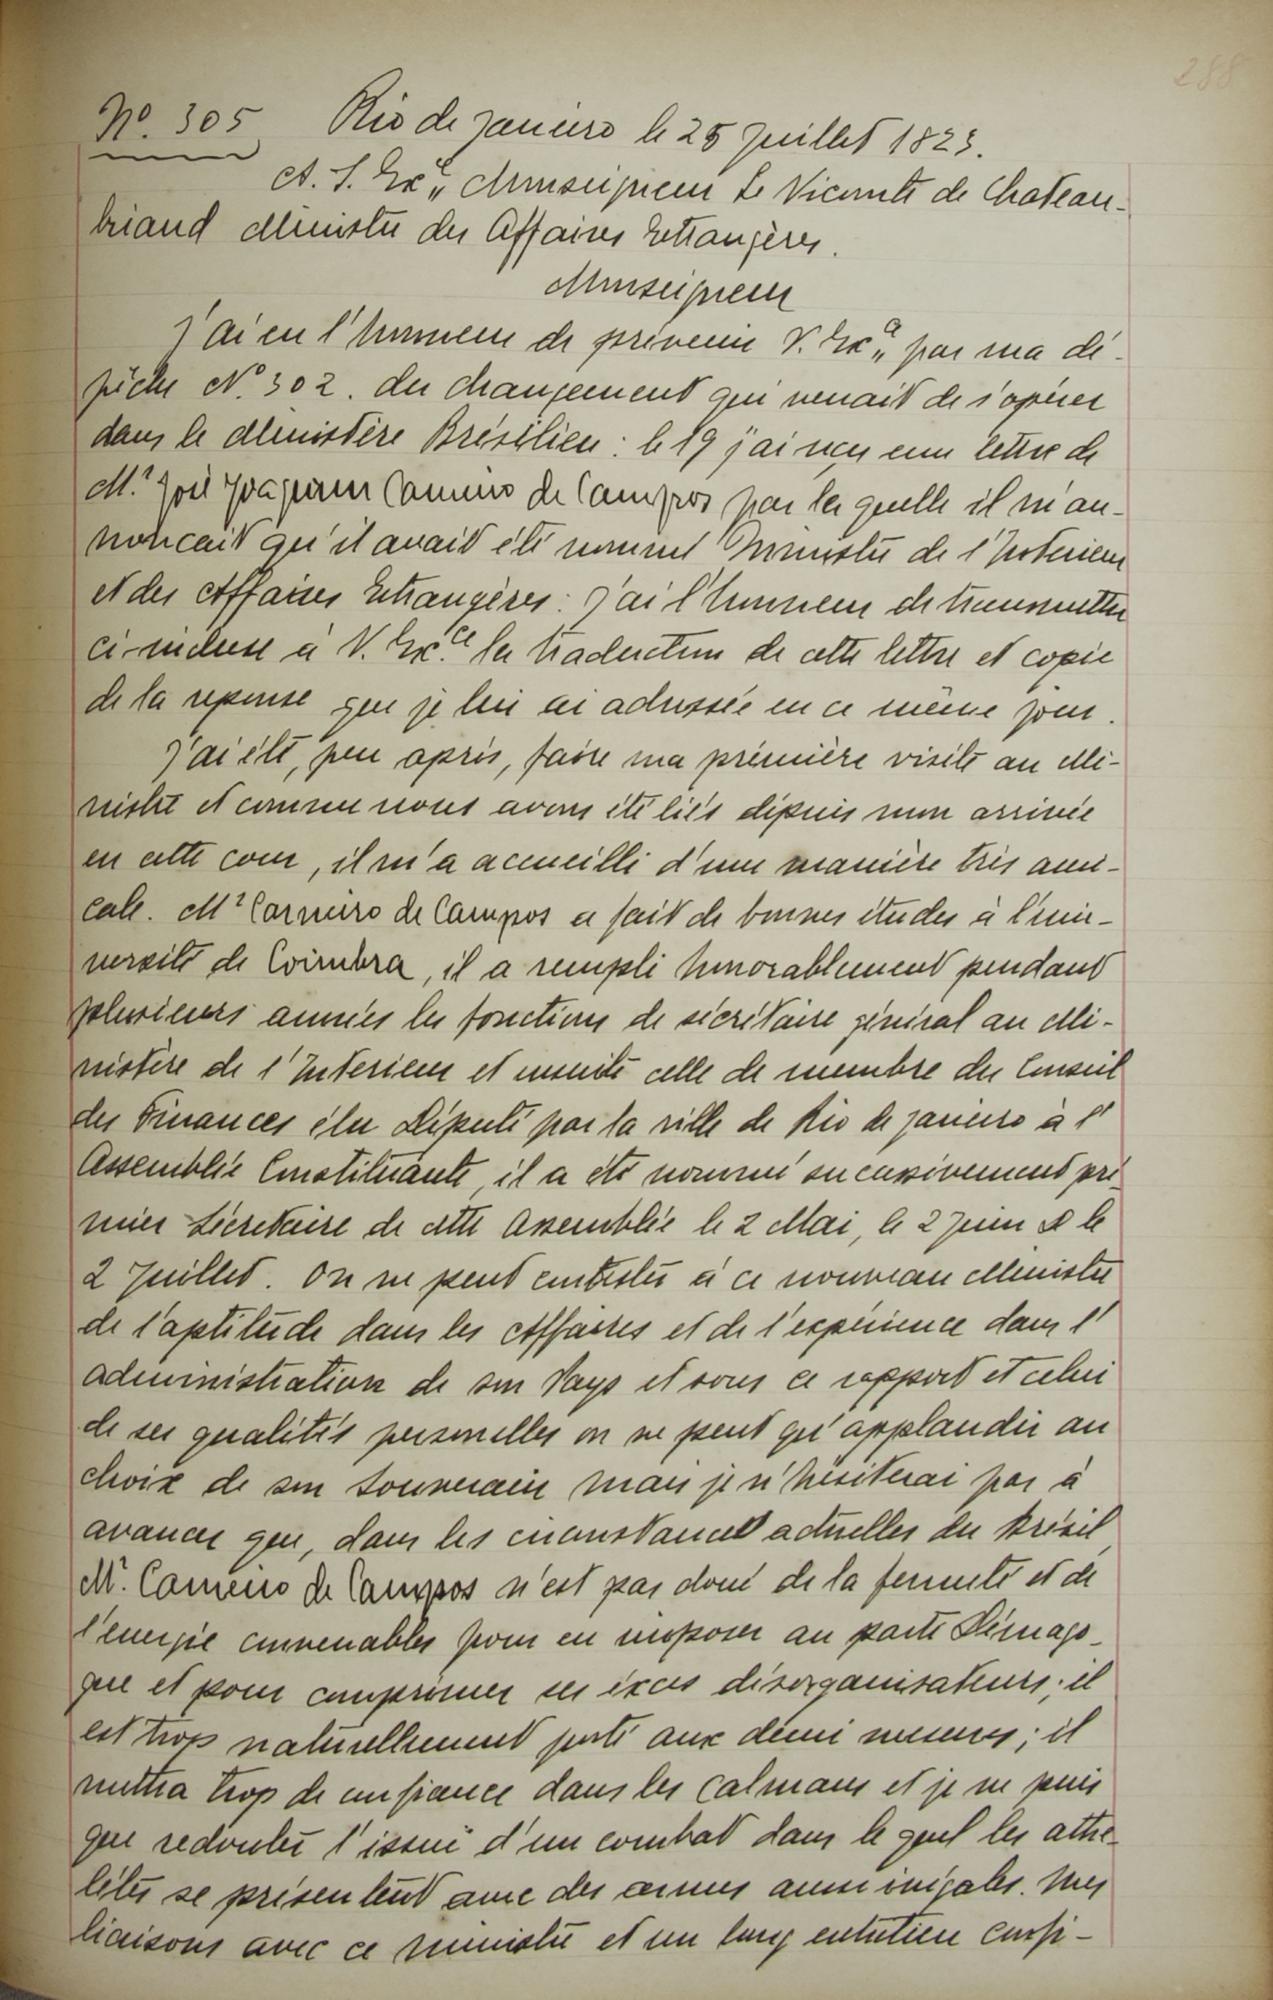 288
Nº. 305 Rio de Janeiro le 25 Juillet 1823.
A. S. Exce„ Monseigneur Le Vicomte de Chateau-
briand Ministre des Affaires Etrangères.
Monseigneur
J'ai eu l'honneur de prévenir V. Exce„ par ma dé-
pêche Nº. 302. du changement qui venait de s'opérer
dans le Ministère Brésilien : le 19 j'ai reçu une lettre de
Mr José Joaquim Carneiro de Campos par la quelle il m'an-
noncait qu'il avait été nommé Ministre de l'Interieur
et des Affaires Etrangères : J'ai l'honneur de transmettre
ci-incluse à V. Exce. la traduction de cette lettre et copie
de la reponse que je lui ai adressée en ce même jour.
J'ai été, peu après, faire ma première visite au Mi-
nistre et comme nous avons été liés dépuis mon arrivée
en cette cour, il m'a accueilli d'une manière très ami-
cale. Mr Carneiro de Campos a fait de bonnes études à l'uni-
versité de Coimbra, il a rempli honorablement pendant
plusieurs années les fonctions de sécrétaire général au Mi-
nistère de l'Interieur et ensuite celle de membre du Conseil
des Finances élu Député par la ville de Rio de Janeiro à l'
Assemblée Constituante, il a été nommé successivement pré-
mier Sécretaire de cette Assemblée le 2 Mai, le 2 Juin et le
2 Juillet. On ne peut contester à ce nouveau Ministre
de l'aptitude dans les Affaires et de l'expérience dans l'
administration de son Pays et sous ce rapport et celui
de ses qualités personelles on ne peut qu'applaudir au
choix de son Souverain mais je n'hésiterai pas à
avancer que, dans les circonstances actuelles du Brésil,
Mr. Carneiro de Campos n'est pas doué de la fermeté et de
l'energie convenables pour en imposer au parti Démago-
gue et pour comprimer ses éxcès désorganisateurs ; il
est trop naturellement porté aux démi mesures ; il
mettra trop de confiance dans les calmans et je ne puis
que redouter l'issue d'un combat dans le quel les athe-
lètes se présentent avec des armes aussi inégales. Mes
liaisons avec ce ministre et un long entretien confi-